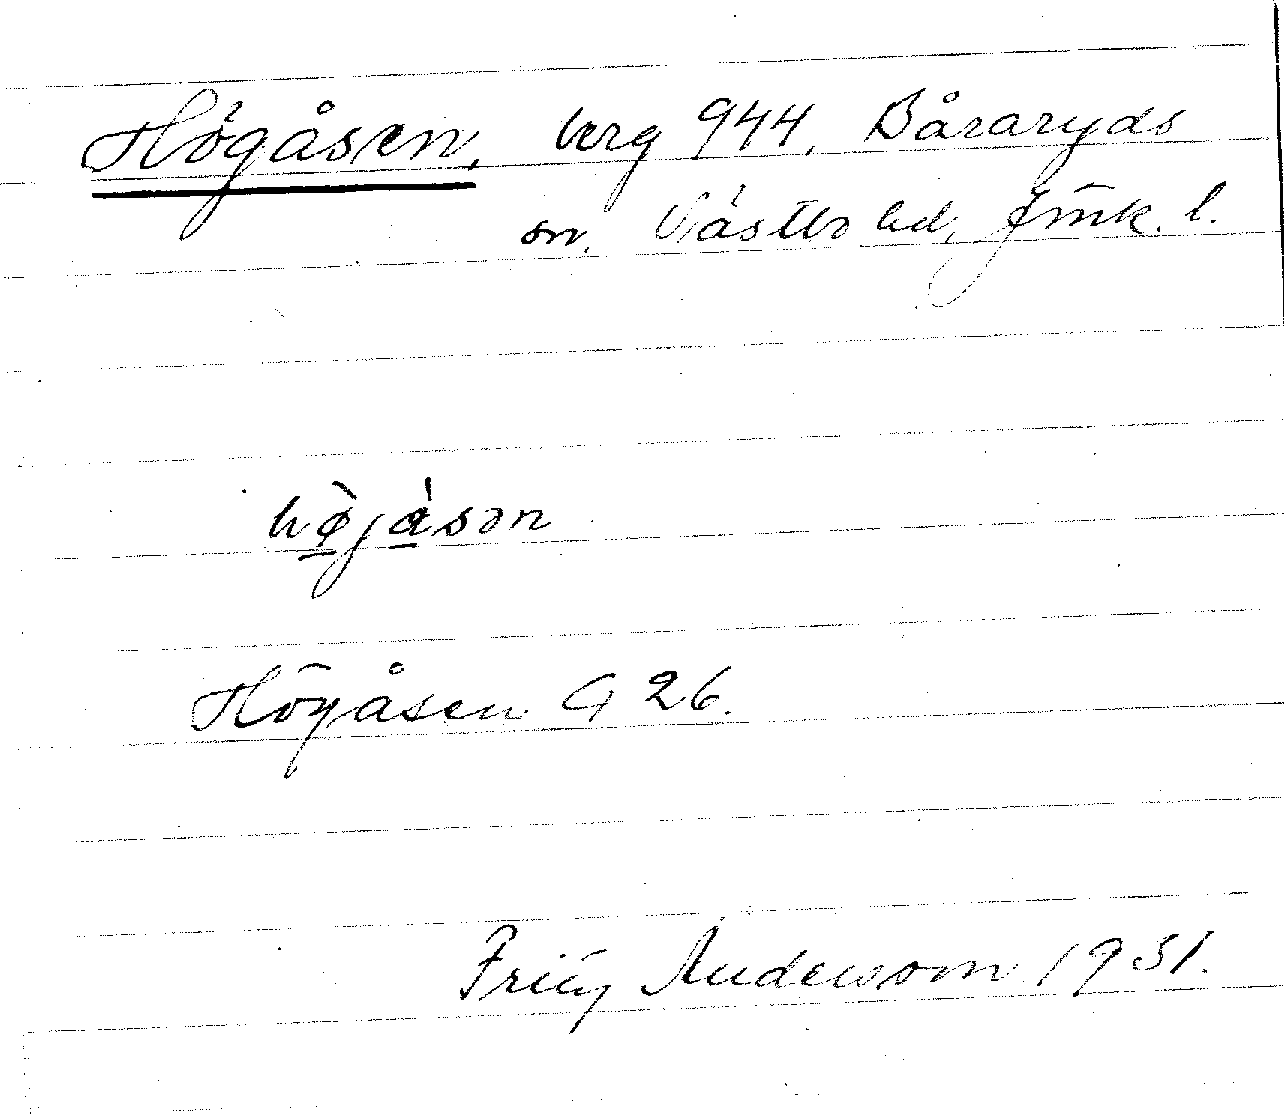 Högåsen, berg 944, Båraryds
sn. Västbo hd, Jönk. l.
hø̀jásən
Högåsen G 26.
Fritz Andersson 1931.